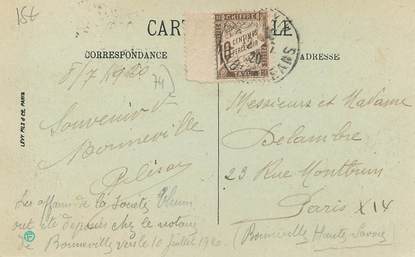 15€
CARTE POSTALE
CORRESPONDANCE
ADRESSE
CHIFFRE
10
CENTIMES
À PERCEVOIR
TAXE
20
8/7 1920
74
Souvenir de
Bonneville
LÉVY FILS & Cie, PARIS
Messieurs et Madame
Delambre
23 Rue Montbrun
Paris XIV
Les affaires de la Société
ont été déposés chez le notaire
de Bonneville vers le 10 juillet 1920.
(Bonneville Haute Savoie)